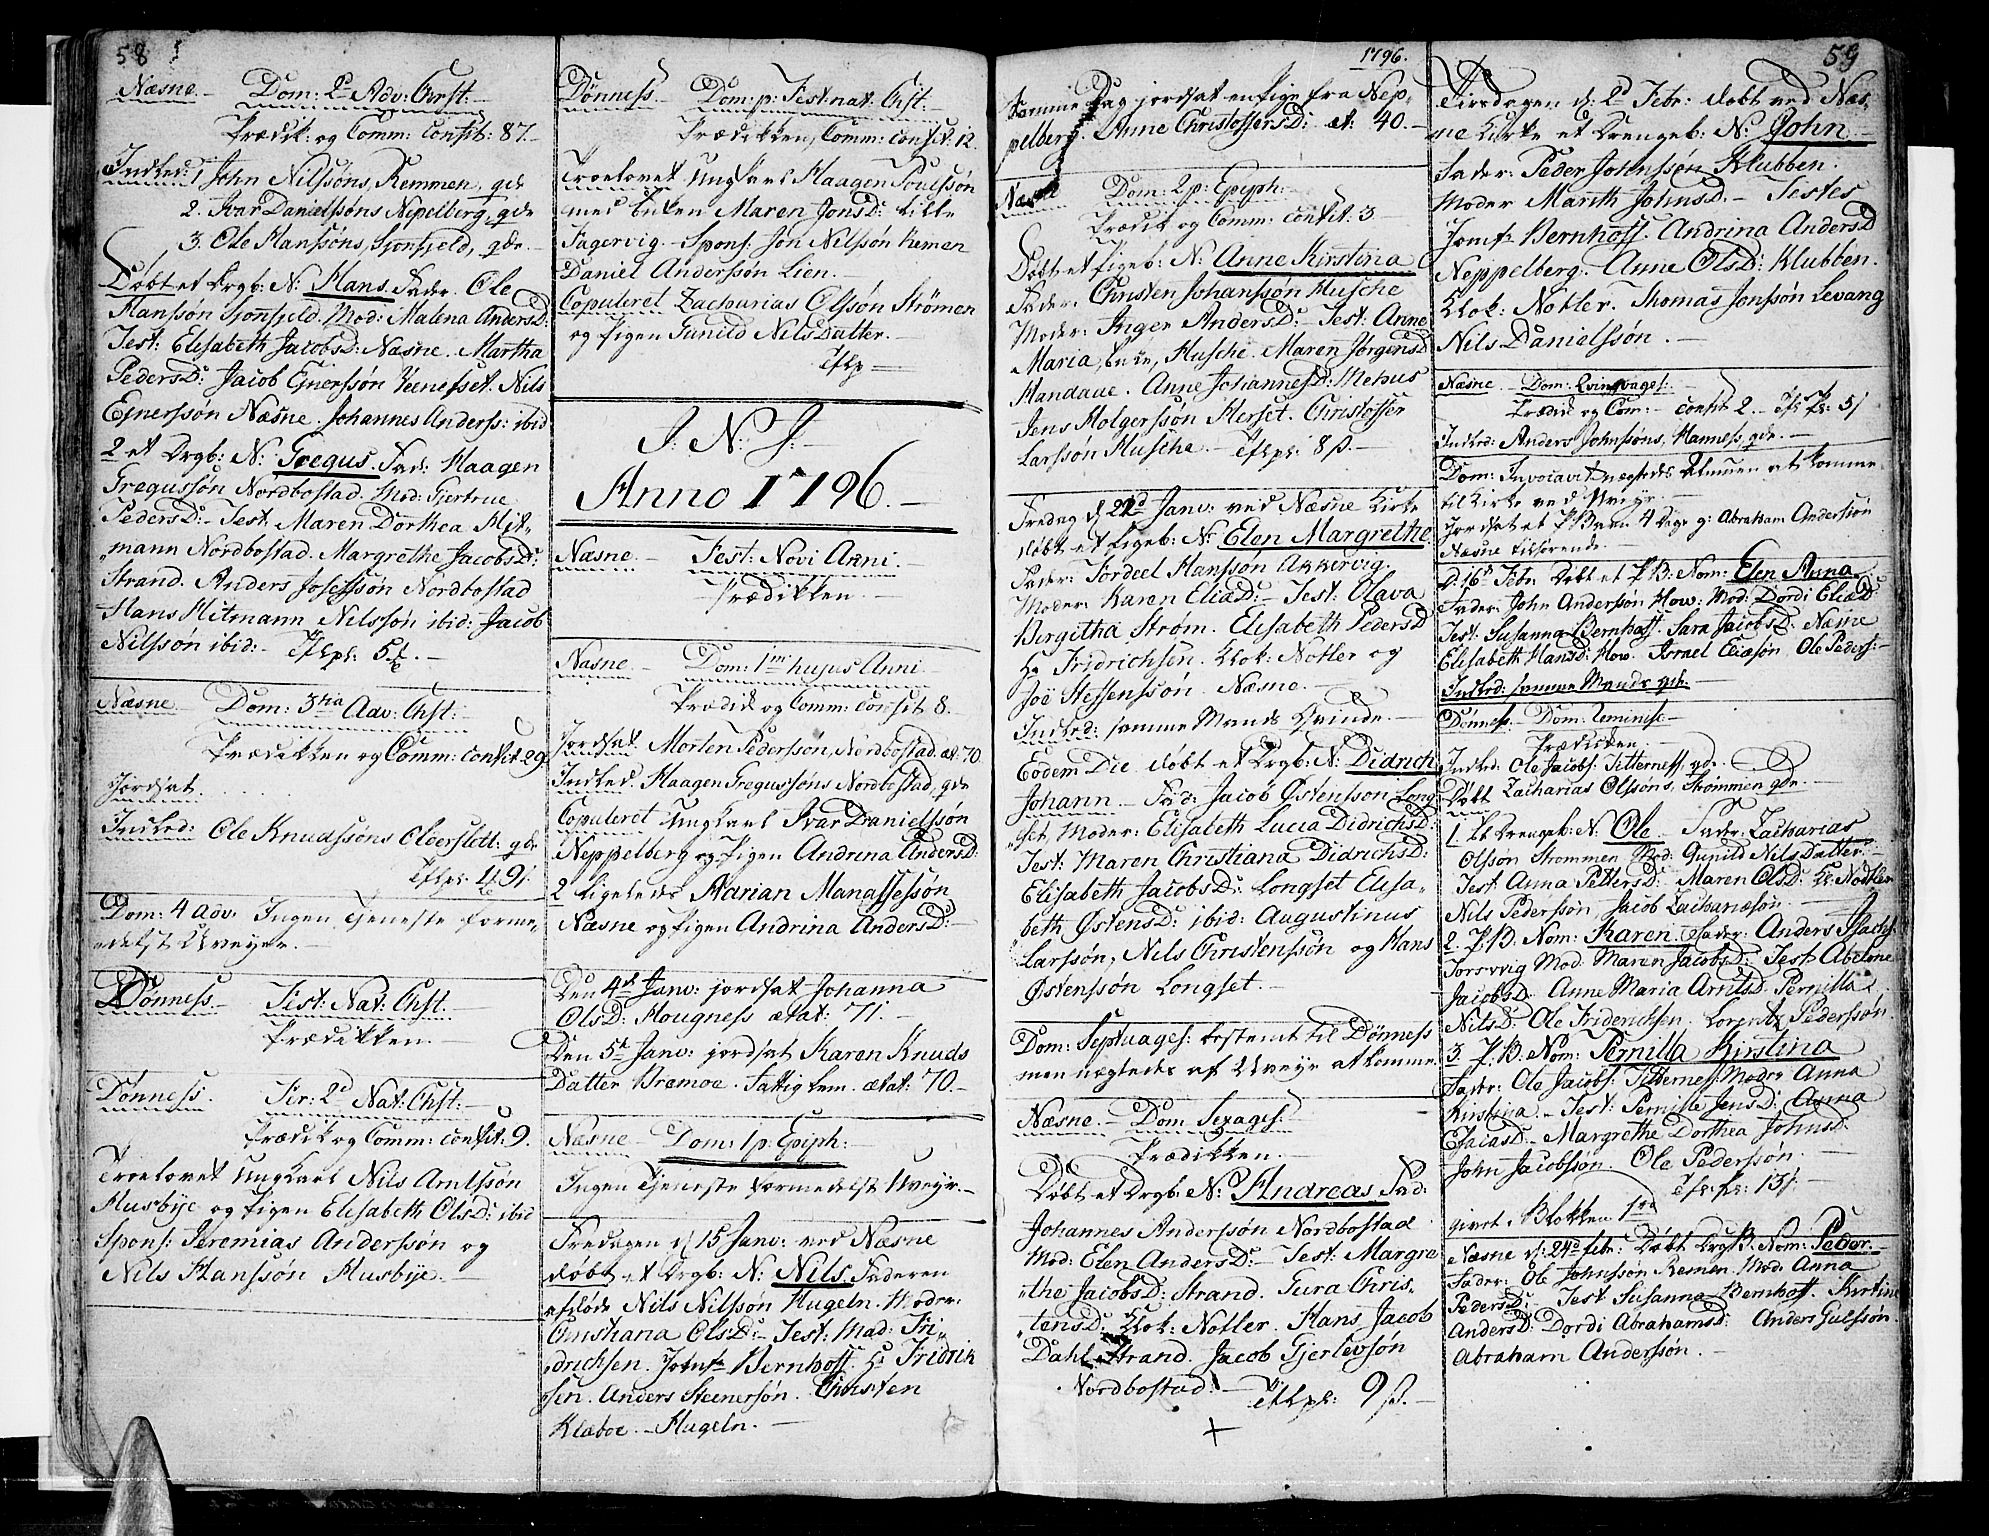 58
Næsne. Dom: 2d Adv: Chrst:
Prædik: og Comm: confit: 87.
Indled: 1 John Nilssöns, Remmen, qde
2. Ivar Danielssöns Nepelberg, qde
3. Ole Hanssöns, Sjonfjeld, qde.
Döbt et Drgb: N: Hans. Fadr. Ole
Hanssön Sjonfjeld. Mod: Malena AndersD:
Test: Elisabeth JacobsD: Næsne. Martha
PedersD: Jacob Ejnerssön Nils
Ejnerssön Næsne. Johannes Anderss: ibid
2 et Drgb: N: Gregus. Fad: Haagen
Gregussön Nordbostad. Mod: Gjertrue
PedersD: Test: Maren Dorthea Hit-
mann Nordbostad. Margrethe JacobsD:
Strand. Anders Josephsön Nordbostad
Hans Hitmann Nilssön ibid: Jacob
Nilssön ibid:
Næsne Dom: 3tia Adv: Chst:
Prædikken og Comm: confit. 29
Jordsat.
Indled: Ole Knudssöns qde
Dom: 4 Adv. Ingen Tjeneste forme-
delst Uveyr.
Dönness. Fest: Nat: Chst:
Prædikken.
Dönness. Fer: 2d Nat: Chst:
Prædik og Comm: confit. 9.
Troelovet Ungkarl Nils Arntssön
Husbÿe og Pigen Elisabeth OlsD: ibid
Spons: Jeremias Anderssön og
Nils Hanssön Husbÿe.
Dönness. Dom: p: Fest. nat: Chst:
Prædikken, Comm: confit: 12.
Troelovet Ungkarl Haagen Poulssön
med Enken Maren JonsD: Lille
Fagervig. Spons: Jon Nilssön Remen
Daniel Anderssön Lien.
Copuleret Zacharias Olssön Strömen
og Pigen Gunild Nils Datter.
I: N: J:
Anno 1796.
Næsne. Fest: Novi Anni.
Prædikken.
Næsne. Dom: 1ma hujus Anni
Prædik og Comm: confit 8.
Jordsat Morten Pederssön, Nordbostad. æt: 70.
Indled: Haagen Gregussöns Nordbostad, qde
Copuleret Ungkarl Ivar Danielssön
Neppelberg og Pigen Andrina AndersD:
2 ligeledes Adrian Manassessön
Næsne og Pigen Andrina AndersD:
Den 4d Janv: jordsat Johanna
OlsD: Hougness ætat: 71.
Den 5t Janv: jordsat Karen Knuds
Datter Bræmoe. Fattig Lem. ætat: 70.
Næsne Dom: 1 p: Epiph:
Ingen Tjeneste formedelst Uveyr.
Fredagen d: 15 Janv: ved Næsne
döbt et Drgb: N: Nils. Faderen
afdöde Nils Nilssön Hugeln. Moder:
Christiana OlsD: Test: Mad: Fri-
drichsen. Jomfr Bernhoff. Hr Fridrik
sen. Anders Steenersön. Christen
Klæboe. Hugeln.
1796.
Samme Dag jordsat en Pige fra Nep-
pelberg. Anne ChristoffersD: æt: 40.
Næsne Dom: 2 p: Epiph:
Prædik og Comm: confit. 3
Döbt et Pigeb: N: Anne Kirstina
Fader. Christen Johanssön Husche
Moder: Inger AndersD: Test: Anne
Maria, Enke, Husche. Maren JörgensD
Handaue. Anne JohannesD: Mehus
Jens Holgerssön Herset. Christoffer
Larssön Husche.
Fredag d: 22d Janv: ved Næsne Kirke
döbt et Pigeb: N: Elen Margrethe
Fader: Tordeel Hanssön Akkervig.
Moder: Karen EliæD: Test: Olava
Birgitha Ström. Elisabeth PedersD
Hr Fridrichsen. Klok: Nötler og
Joe Steffenssön. Næsne.
Indled: samme Mands Qvinde.
Eodem Die döbt et Drgb: N: Didrich
Johann Fad: Jacob Östensson Long
set, Moder: Elisabeth Lucia DidrichsD:
Test: Maren Christiana DidrichsD:
Elisabeth JacobsD: Longset. Elisa-
beth ÖstensD: ibid: Augustinus
Larssön, Nils Christenssön og Hans
Östenssön Longset.
Dom: Septuages: bestemt til Dönness
men nægtedes af Uveyr at komme.
Næsne. Dom: Sexages:
Prædikken.
Döbt et Drgb: N: Andreas. Fad:
Johannes Anderssön Nordbostad
Mod: Elen AndersD: Test: Margre
the JacobsD: Strand. Tura Chris-
tensD: Klok: Nötler. Hans Jacob
Dahl. Strand. Jacob Gjertevsön
Nordbostad:
59
Tirsdagen d: 2d Febr: döbt ved Næs-
ne Kirke et Drengeb: N: John
Fader: Peder Johnssön Klubben.
Moder Marith JohnsD: Testes
Jomfr Bernhoff. Andrina AndersD
Neppelberg. Anne OlsD: Klubben.
Klok: Nötler. Thomas Jonssön Levang
Nils Danielssön.
Næsne. Dom: Qvinqvages:
Prædik og Com: confit 2.
Indled: Anders Johnssöns, Hanness, qde.
Dom: Invocavit nægtedes Almuen at komme
til Kirke ved Uveyr.
Jordsat et P Barn 4 Dage g: Abraham Anderssön
Næsne tilhörende.
D: 16d Febr: Döbt et P:B: Nom: Elen Anna.
Fader: John Anderssön How: Mod: Dordi EliæD:
Test: Susanna Bernhoff. Sara JacobsD. Næsne
Elisabeth HansD: How. Israel Eliæsön Ole Peders:
Indled: samme Mands qde.
Dönness. Dom: Reminisc
Prædikken
Indled: Ole Jacobs: Titterness, qde.
Zacharias Olssöns, Strömmen qde.
Döbt
1. Et Drengeb: N: Ole Fader: Zacharias
Olssön Strömmen Mod: Gunild Nils Datter.
Test: Anna PettersD: Maren OlsD:
Nils Pederssön Jacob Zachariæsön.
2. P.B: Nom: Karen. Fader: Anders Isachs:
Forsvvig Mod: Maren JacobsD: Test Abelone
JacobsD. Anne Maria ArntsD. Pernilla
NilsD: Ole Friderichsen. Lorentz Pederssön.
3. P.B: Nom: Pernilla Kirstina
Fader: Ole Jacobs: Titterness Moder Anna
Kirstina Test: Pernille JensD: Anna
EsaiasD. Margrethe Dorthea JohnsD.
John Jacobssön. Ole Pederssön.
Næsne d: 24d febr: Döbt Drg:B: Nom: Peder.
Fader: Ole Johnssön Remen Mod Anna
PedersD: Test Susanna Bernhoff. Kirstine
AndersD: Dordi AbrahamsD: Anders Gulssön.
Abraham Anderssön.